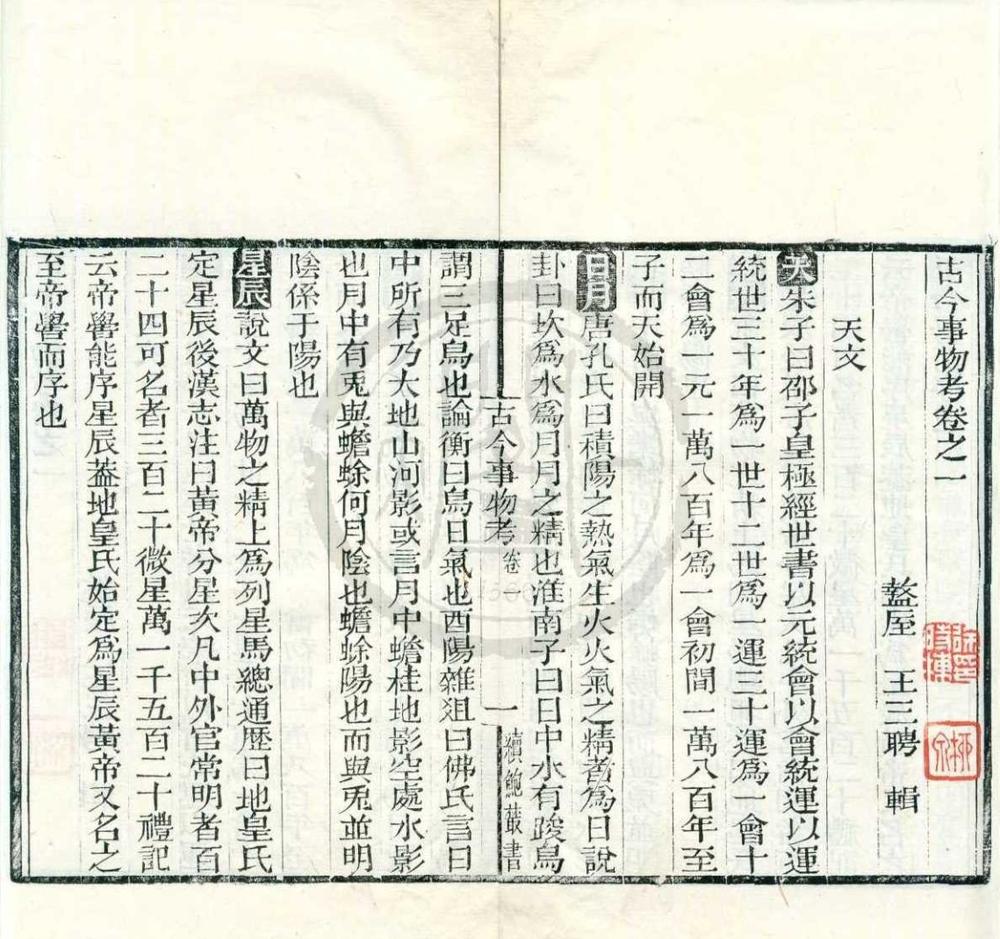 古今事物考卷之一
盩厔 王三聘 輯
天文
天朱子曰邵子皇極經世書以元統會以會統運以運
統世三十年為一世十二世為一運三十運為一會十
二會為一元一萬八百年為一會初間一萬八百年至
子而天始開
日月唐孔氏曰積陽之熱氣生火火氣之精者為日說
卦曰坎為水為月月之精也淮南子曰日中水有踆烏
古今事物考 卷一 續鮑叢書
謂三足烏也論衡曰烏日氣也酉陽雜俎曰佛氏言日
中所有乃大地山河影或言月中蟾桂地影空處水影
也月中有兎與蟾蜍何月陰也蟾蜍陽也而與兎並明
陰係于陽也
星辰說文曰萬物之精上為列星馬總通歷曰地皇氏
定星辰後漢志注曰黃帝分星次凡中外官常明者百
二十四可名者三百二十微星萬一千五百二十禮記
云帝嚳能序星辰葢地皇氏始定為星辰黃帝又名之
至帝嚳而序也